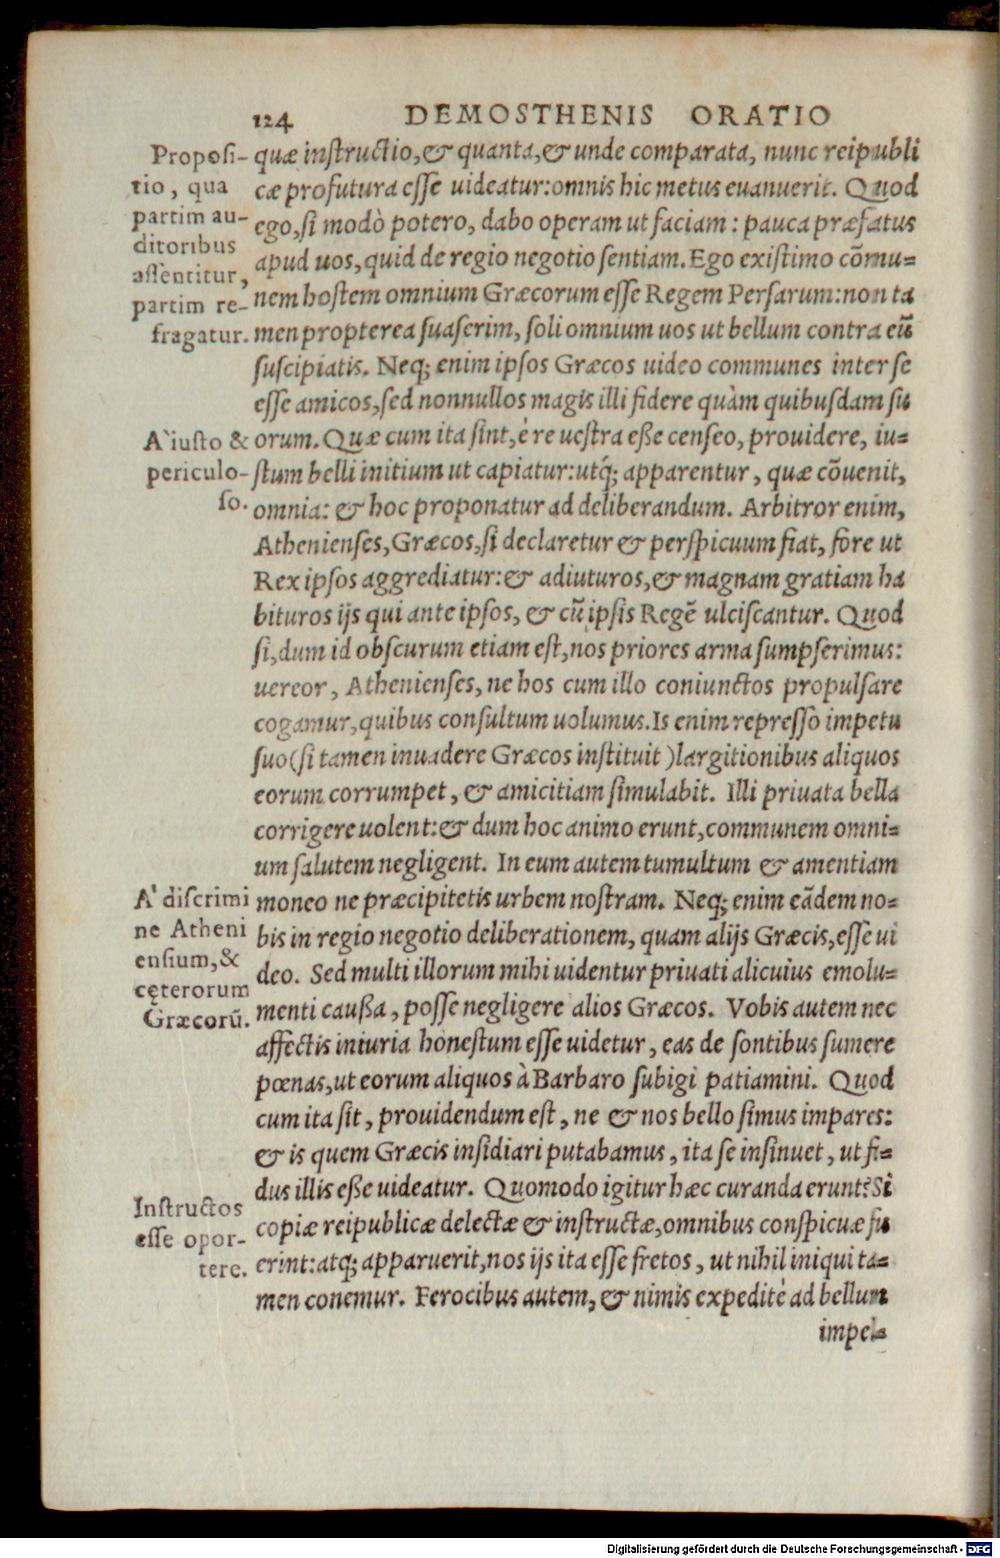 124 DEMOSTHENIS ORATIO
Proposi-
tio, qua
partim au-
ditoribus
assentitur,
partim re-
fragatur.
quæ instructio,& quanta,& unde comparata, nunc reipubli
cæ profutura esse uideatur:omnis hic metus euanuerit. Quod
ego,si modò potero, dabo operam ut faciam : pauca præfatus
apud uos,quid de regio negotio sentiam. Ego existimo cõmu-
nem hostem omnium Græcorum esse Regem Persarum:non ta
men propterea suaserim, soli omnium uos ut bellum contra eũ
suscipiatis. Neq; enim ipsos Græcos uideo communes inter se
esse amicos,sed nonnullos magis illi fidere quàm quibusdam su
A' iusto &
periculo-
so.
orum. Quæ cum ita sint,è re uestra eße censeo, prouidere, iu-
stum belli initium ut capiatur:utq́; apparentur, quæ cõuenit,
omnia: & hoc proponatur ad deliberandum. Arbitror enim,
Athenienses,Græcos,si declaretur & perspicuum fiat, fore ut
Rex ipsos aggrediatur:& adiuturos,& magnam gratiam ha
bituros ijs qui ante ipsos, & cũ ipsis Regẽ ulciscantur. Quod
si,dum id obscurum etiam est,nos priores arma sumpserimus:
uereor, Athenienses, ne hos cum illo coniunctos propulsare
cogamur,quibus consultum uolumus.Is enim represso impetu
suo(si tamen inuadere Græcos instituit )largitionibus aliquos
eorum corrumpet, & amicitiam simulabit. Illi priuata bella
corrigere uolent:& dum hoc animo erunt,communem omni-
um salutem negligent. In eum autem tumultum & amentiam
A' discrimi
ne Atheni
ensium,&
cęterorum
Græcorũ.
moneo ne præcipitetis urbem nostram. Neq; enim eãdem no-
bis in regio negotio deliberationem, quam alijs Græcis,esse ui
deo. Sed multi illorum mihi uidentur priuati alicuius emolu-
menti caußa, posse negligere alios Græcos. Vobis autem nec
affectis iniuria honestum esse uidetur, eas de sontibus sumere
pœnas,ut eorum aliquos à Barbaro subigi patiamini. Quod
cum ita sit, prouidendum est, ne & nos bello simus impares:
& is quem Græcis insidiari putabamus, ita se insinuet, ut fi-
dus illis eße uideatur. Quomodo igitur hæc curanda erunt? Si
Instructos
esse opor-
tere.
copiæ reipublicæ delectæ & instructæ,omnibus conspicuæ fu
erint:atq; apparuerit,nos ijs ita esse fretos, ut nihil iniqui ta-
men conemur. Ferocibus autem, & nimis expeditè ad bellum
impel-
Digitalisierung gefördert durch die Deutsche Forschungsgemeinschaft - DFG